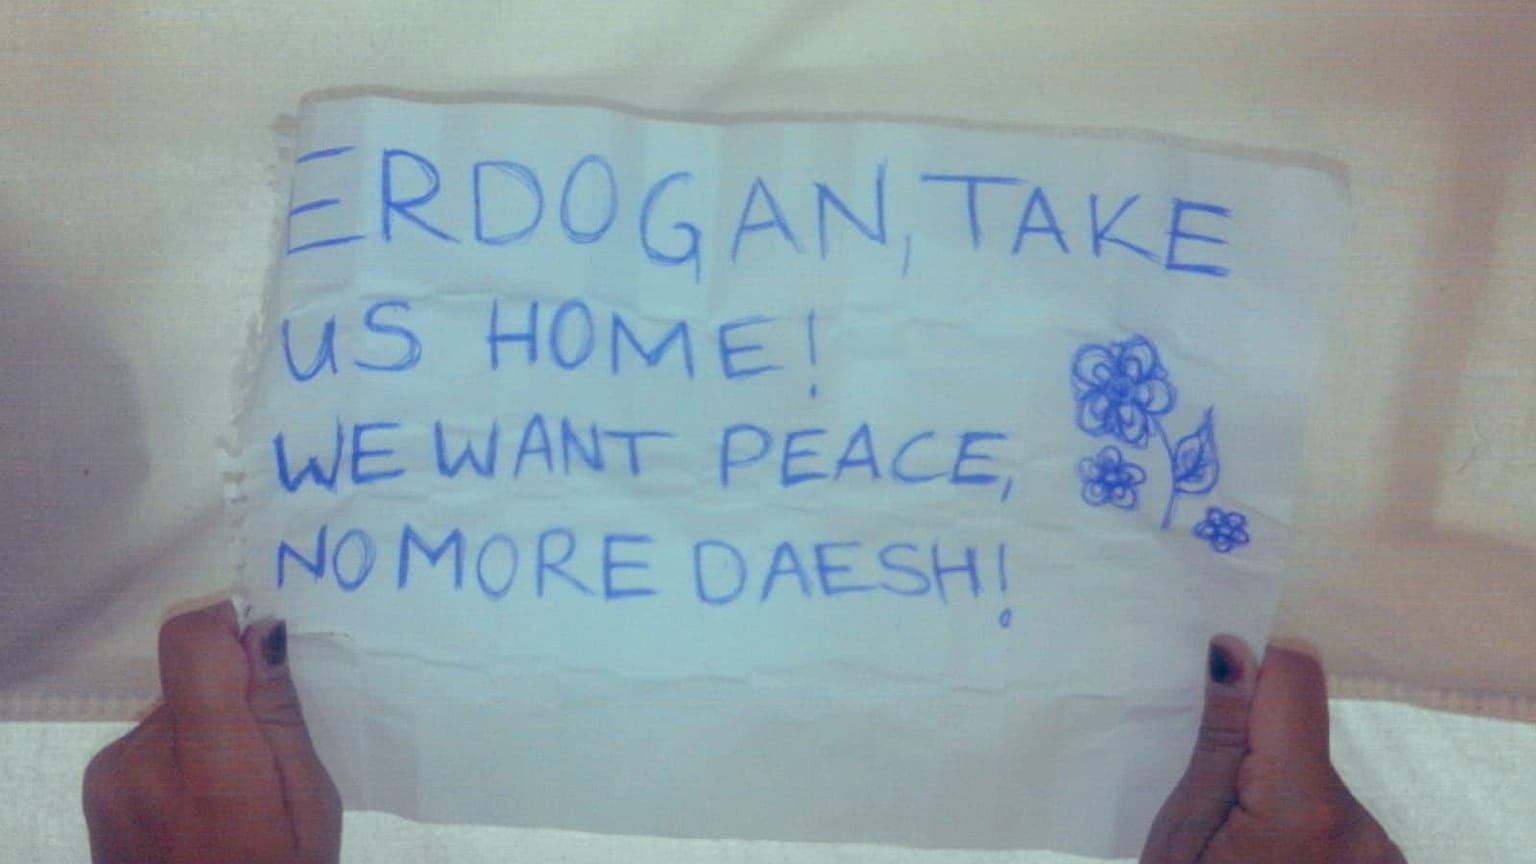 ERDOGAN, TAKE
US HOME!
WE WANT PEACE,
NO MORE DAESH!